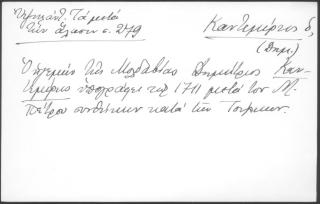 Υψηλάντ. Τα μετά
την άλωσιν σ. 279
Καντεμίρης δ,
(Δημ.)
Ο ηγεμών της Μολδαβίας Δημήτριος Καν-
τεμίρης υπογράφει τη 1711 μετά του Μ.
Πέτρου συνθήκην κατά των Τούρκων.